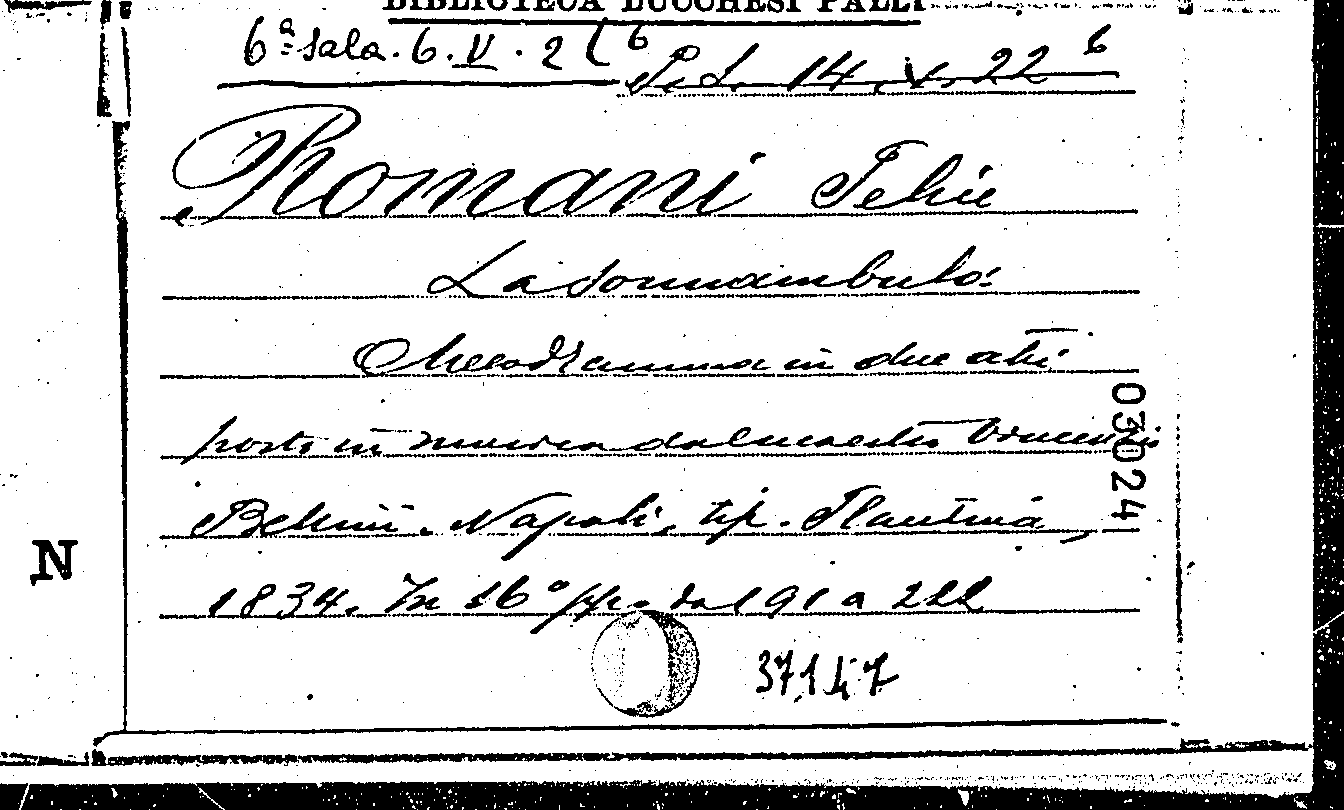 BIBLIOTECA LUCCHESI PALLI
6ª Sala. 6. V. 2 6
14. X. 22 6
Romani Felice
La Sonnambula:
Melodramma in due atti
posto in musica dal maestro Vincenzo
Bellini. Napoli, tip. Flautina,
1834. In 16° pp. da 191 a 222
03024
N
37147